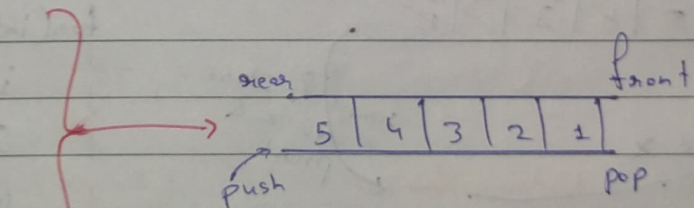 rear front
5 4 3 2 1
push pop.